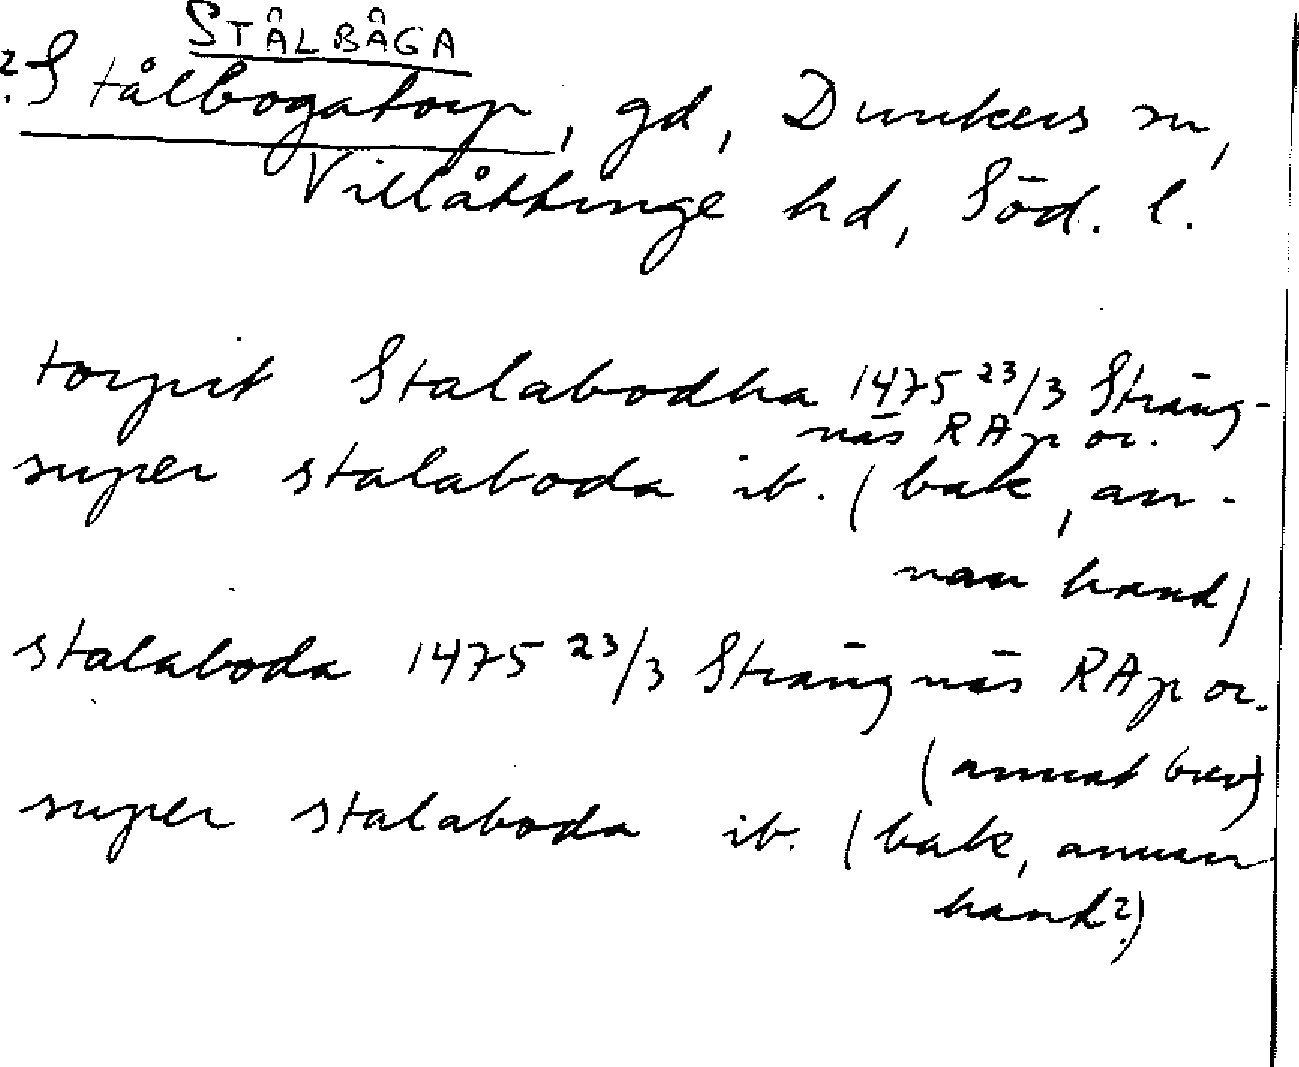 STÅLBÅGA
? Stålbogatorp, gd, Dunkers sn,
Villåttinge hd, Söd. l.
torpit Stalabodha 1475 23/3 Sträng-
näs RAp or.
super stalaboda ib. (bak, an-
nan hand)
stalaboda 1475 23/3 Strängnäs RAp or.
(annat brev)
super stalaboda ib. (bak, annan
hand?)